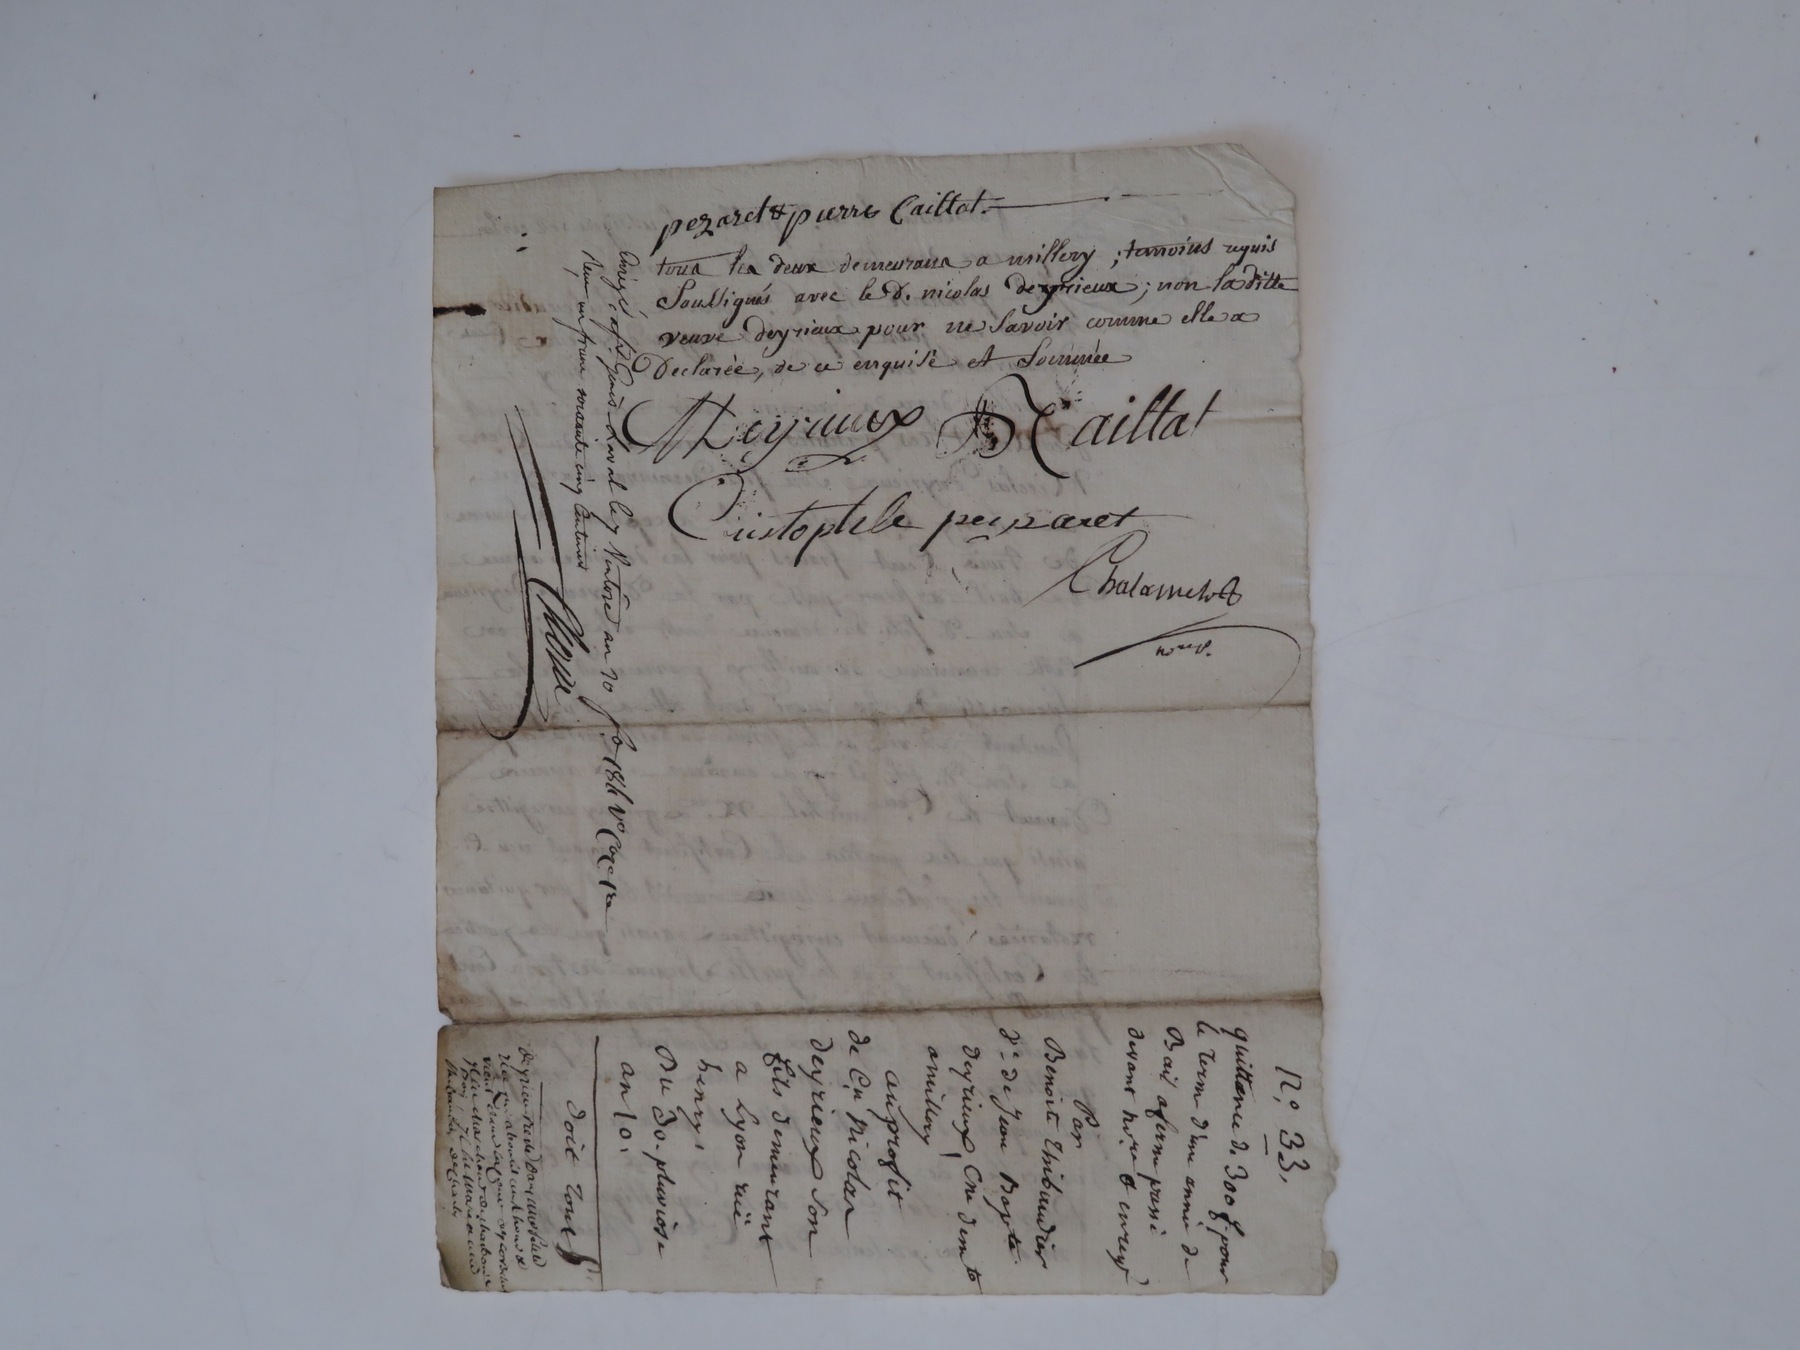 pezaret & pierre Caillat.
tous les deux demeurans a millery ; temoins requis
Soussignés avec le d. nicolas deyrieux ; non la ditte
veuve deyrieux pour ne Savoir comme elle a
Declarée, de ce enquise et Sommée
NDeyrieux P Caillat
Cristophle peizaret
Chalamel
nore p.
Enregé à St Genis Laval le 7 Ventose an 10 fo 184 Vo
Reçu un franc soixante cinq centimes
No. 33.
quittance de 300 f. pour
le Terme d'une année de
Bail a ferme passé
devant nore & enregé
Par
Benoite Thibaudier
ve. de Jean Bapte.
deyrieux, Cne demte
a millery
au profit
de Cn Nicolas
deyrieux Son
fils demeurant
a Lyon ruë
henry,
Du 30. pluviose
an 10.
doit tout